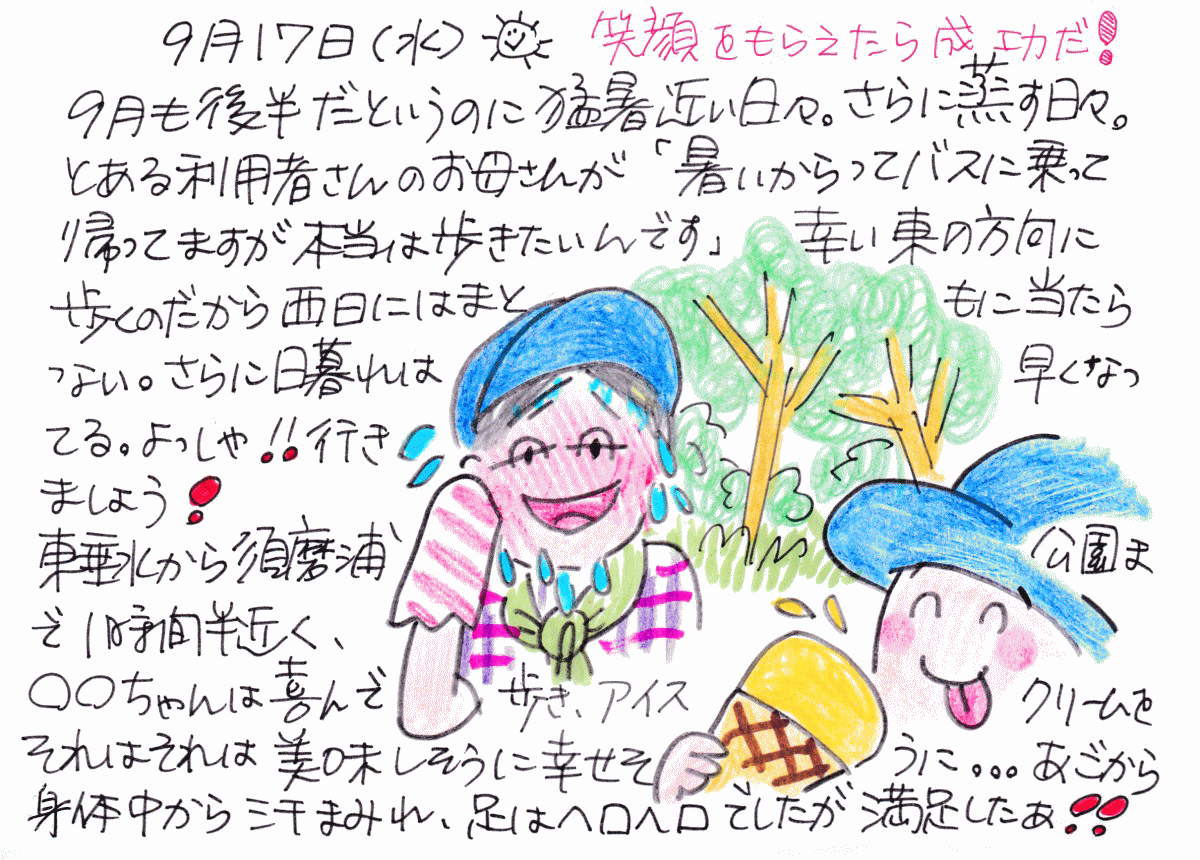 9月17日(水) 笑顔をもらえたら成功だ!
9月も後半だというのに猛暑近い日々。さらに蒸す日々。
とある利用者さんのお母さんが「暑いからってバスに乗って
帰ってますが本当は歩きたいんです」 幸い東の方向に
歩くのだから西日にはまと もに当たら
ない。さらに日暮れは 早くなっ
てる。よっしゃ!!行き
ましょう!
東垂水から須磨浦 公園ま
で1時間半近く、
〇〇ちゃんは喜んで 歩き、アイス クリームを
それはそれは美味しそうに幸せそ うに...あごから
身体中から汗まみれ、足はヘロヘロでしたが満足したぁ!!